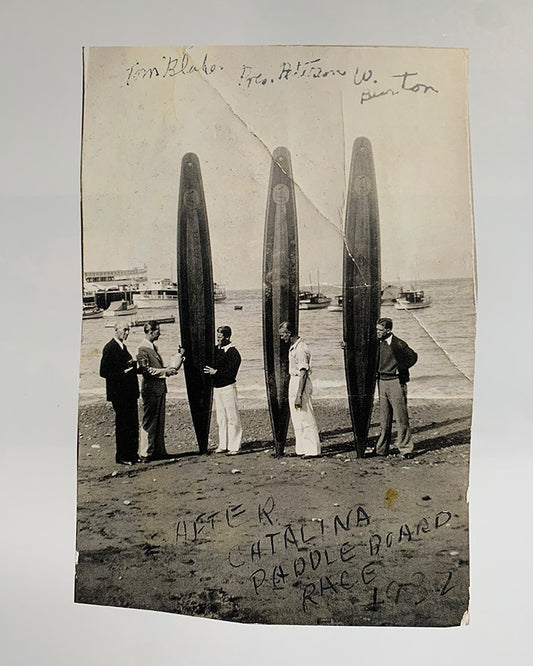 Tom Blake. Pete Peterson W.
Burton
AFTER
CATALINA
PADDLE BOARD
RACE 1932